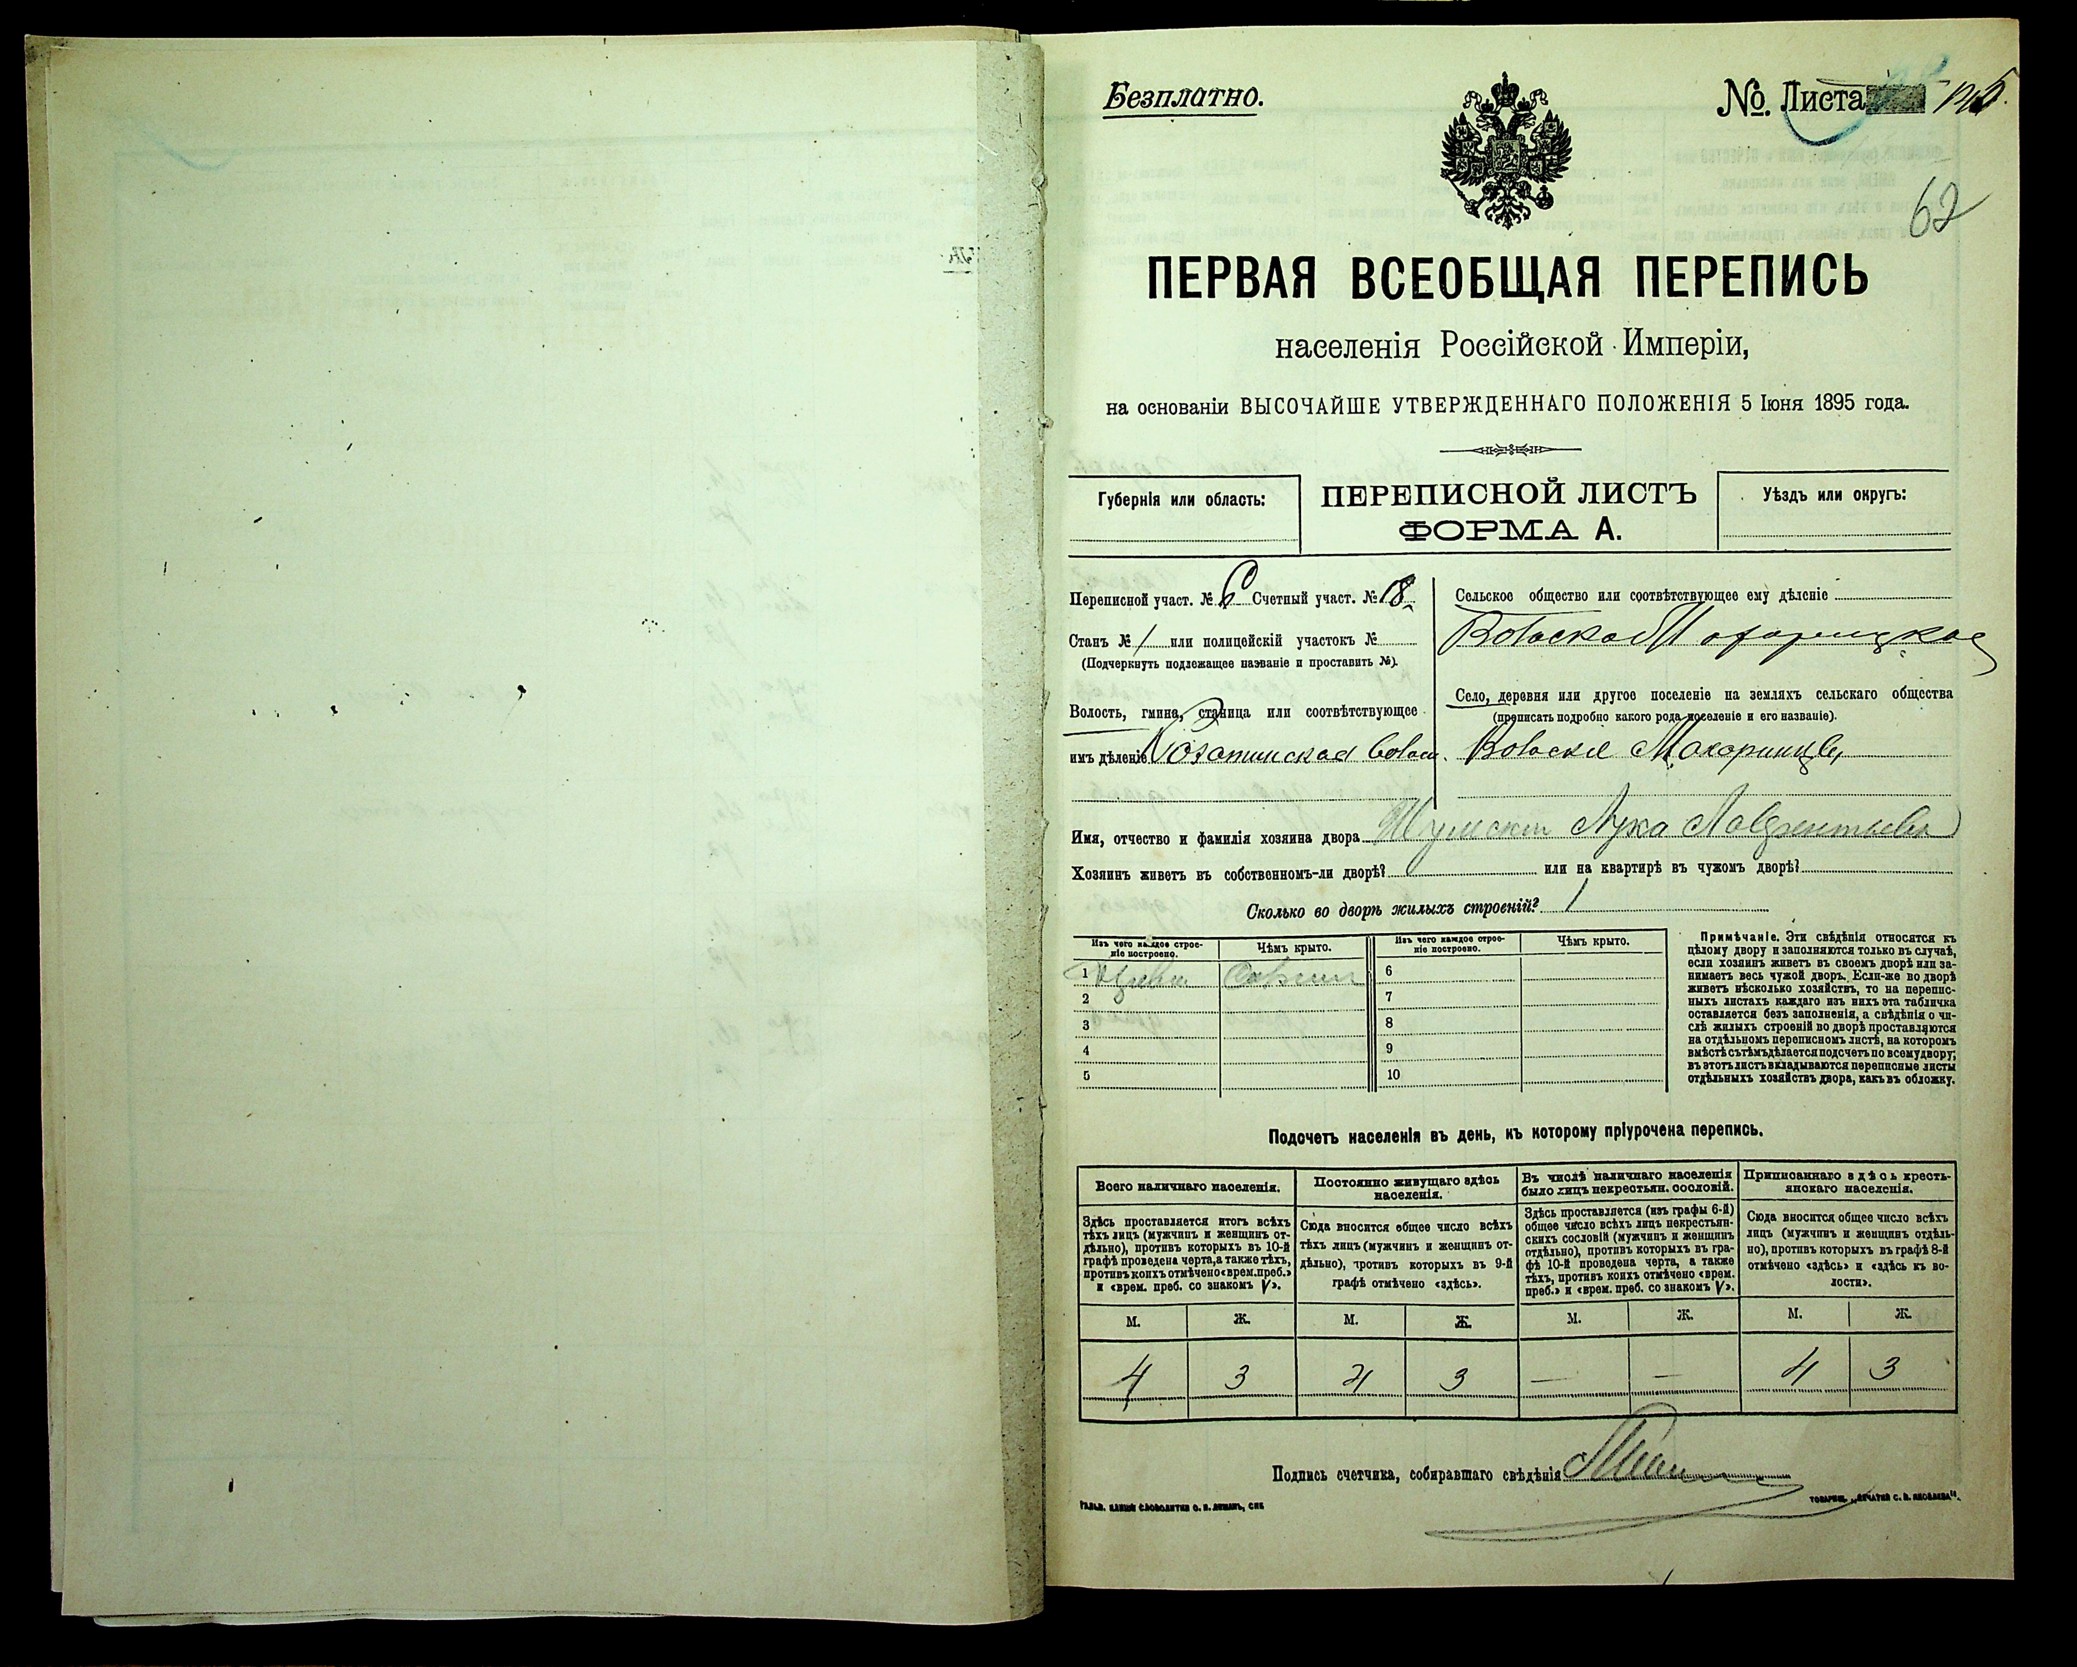 Безплатно.
№. Листа
62
ПЕРВАЯ ВСЕОБЩАЯ ПЕРЕПИСЬ
населенія Россійской Имперіи,
на основаніи ВЫСОЧАЙШЕ УТВЕРЖДЕННАГО ПОЛОЖЕНІЯ 5 Іюня 1895 года.
Губернія или область:
ПЕРЕПИСНОЙ ЛИСТЪ
ФОРМА А.
Уѣздъ или округъ:
Переписной участ. № 6 Счетный участ. № 18
Станъ № 1 или полицейскій участокъ №
(Подчеркнуть подлежащее названіе и проставить №).
Волость, гмина, станица или соотвѣтствующее
имъ дѣленіе
Сельское общество или соотвѣтствующее ему дѣленіе
Село, деревня или другое поселеніе на земляхъ сельскаго общества
(прописать подробно какого рода поселеніе и его названіе).
Имя, отчество и фамилія хозяина двора Шумскій Лука Лаврентьевъ
Хозяинъ живетъ въ собственномъ-ли дворѣ? или на квартирѣ въ чужомъ дворѣ?
Сколько во дворѣ жилыхъ строеній? 1
Изъ чего каждое строе-
ніе построено.
Чѣмъ крыто.
Изъ чего каждое строе-
ніе построено.
Чѣмъ крыто.
1
2
3
4
5
6
7
8
9
10
Примѣчаніе. Эти свѣдѣнія относятся къ
цѣлому двору и заполняются только въ случаѣ,
если хозяинъ живетъ въ своемъ дворѣ или за-
нимаетъ весь чужой дворъ. Если-же во дворѣ
живетъ нѣсколько хозяйствъ, то на перепис-
ныхъ листахъ каждаго изъ нихъ эта табличка
оставляется безъ заполненія, а свѣдѣнія о чи-
слѣ жилыхъ строеній во дворѣ проставляются
на отдѣльномъ переписномъ листѣ, на которомъ
вмѣстѣ съ тѣмъ дѣлается подсчетъ по всему двору;
въ этотъ листъ вкладываются переписные листы
отдѣльныхъ хозяйствъ двора, какъ въ обложку.
Подсчетъ населенія въ день, къ которому пріурочена перепись.
Всего наличнаго населенія.
Здѣсь проставляется итогъ всѣхъ
тѣхъ лицъ (мужчинъ и женщинъ от-
дѣльно), противъ которыхъ въ 10-й
графѣ проведена черта, а также тѣхъ,
противъ коихъ отмѣчено «врем. преб.»
и «врем. преб. со знакомъ V».
Постоянно живущаго здѣсь
населенія.
Сюда вносится общее число всѣхъ
тѣхъ лицъ (мужчинъ и женщинъ от-
дѣльно), противъ которыхъ въ 9-й
графѣ отмѣчено «здѣсь».
Въ числѣ наличнаго населенія
было лицъ некрестьян. сословій.
Здѣсь проставляется (изъ графы 6-й)
общее число всѣхъ лицъ некрестьян-
скихъ сословій (мужчинъ и женщинъ
отдѣльно), противъ которыхъ въ гра-
фѣ 10-й проведена черта, а также
тѣхъ, противъ коихъ отмѣчено «врем.
преб.» и «врем. преб. со знакомъ V».
Приписаннаго здѣсь кресть-
янскаго населенія.
Сюда вносится общее число всѣхъ
лицъ (мужчинъ и женщинъ отдѣль-
но), противъ которыхъ въ графѣ 8-й
отмѣчено «здѣсь» и «здѣсь къ во-
лости».
М. Ж. М. Ж. М. Ж. М. Ж.
4 3 4 3 — — 4 3
Подпись счетчика, собиравшаго свѣдѣнія